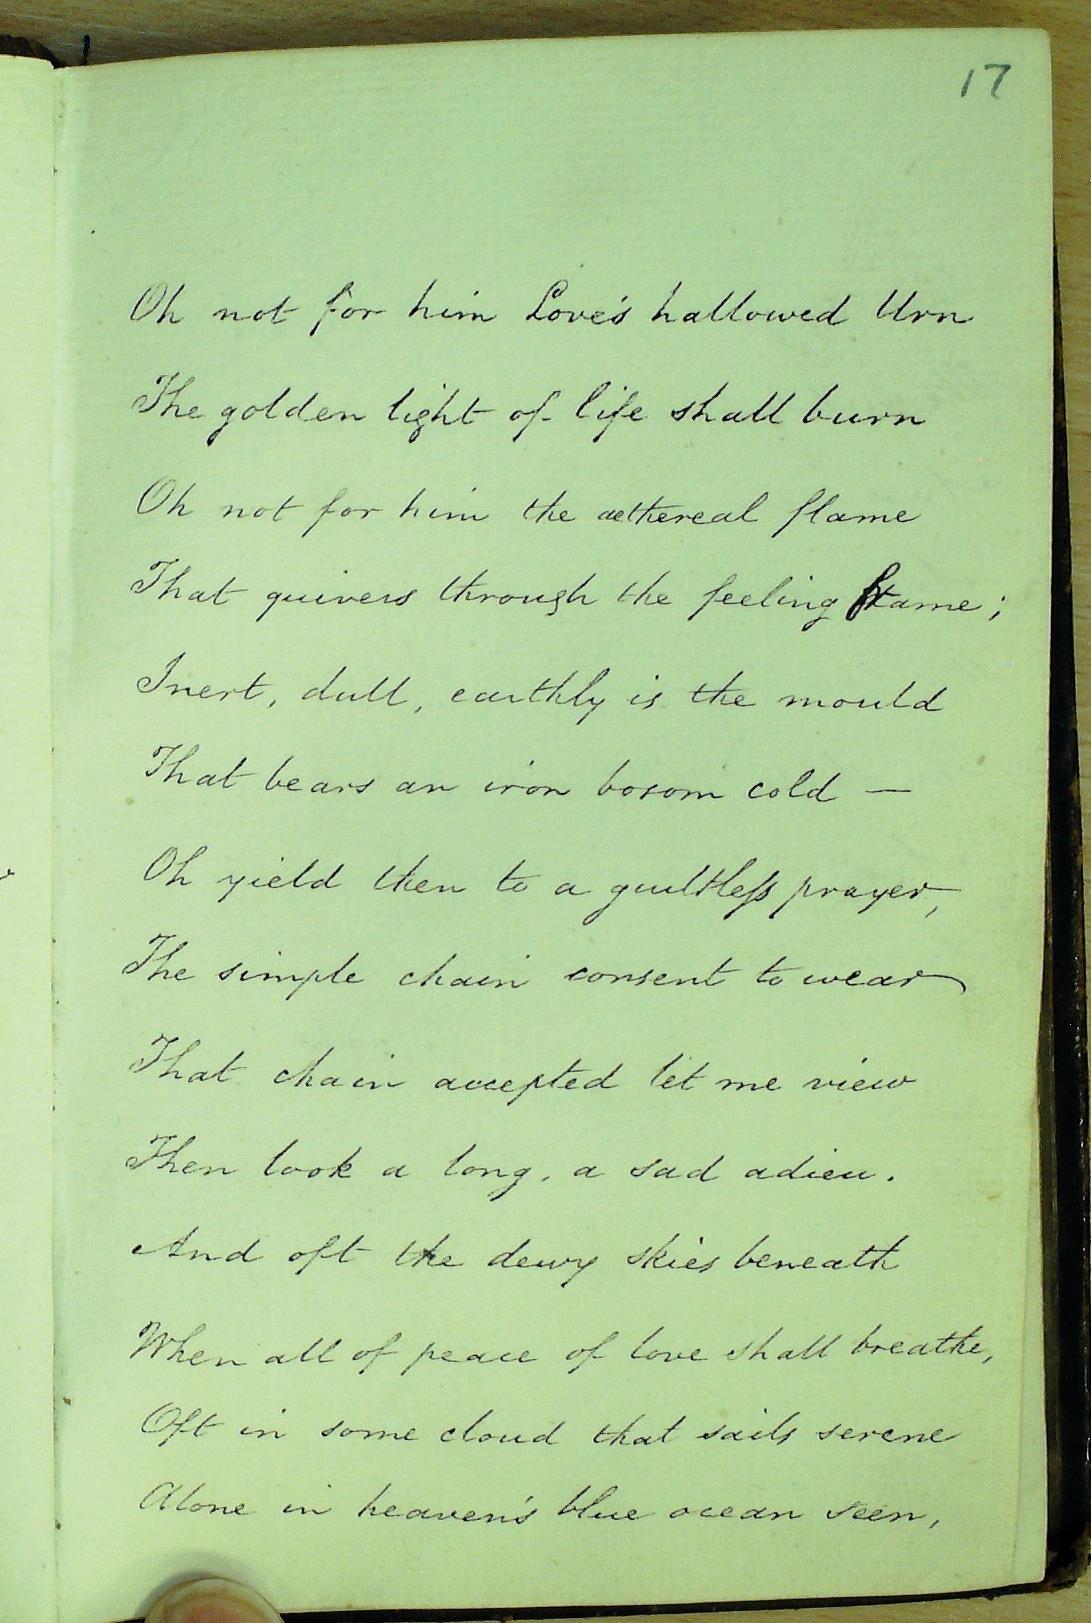 17
Oh not for him Love's hallowed Urn
The golden light of life shall burn
Oh not for him the aethereal flame
That quivers through the feeling frame;
Inert, dull, earthly is the mould
That bears an iron bosom cold —
Oh yield then to a guiltless prayer,
The simple chain consent to wear
That chain accepted let me view
Then look a long, a sad adieu.
And oft the dewy skies beneath
When all of peace of love shall breathe,
Oft in some cloud that sails serene
Alone in heaven's blue ocean seen,